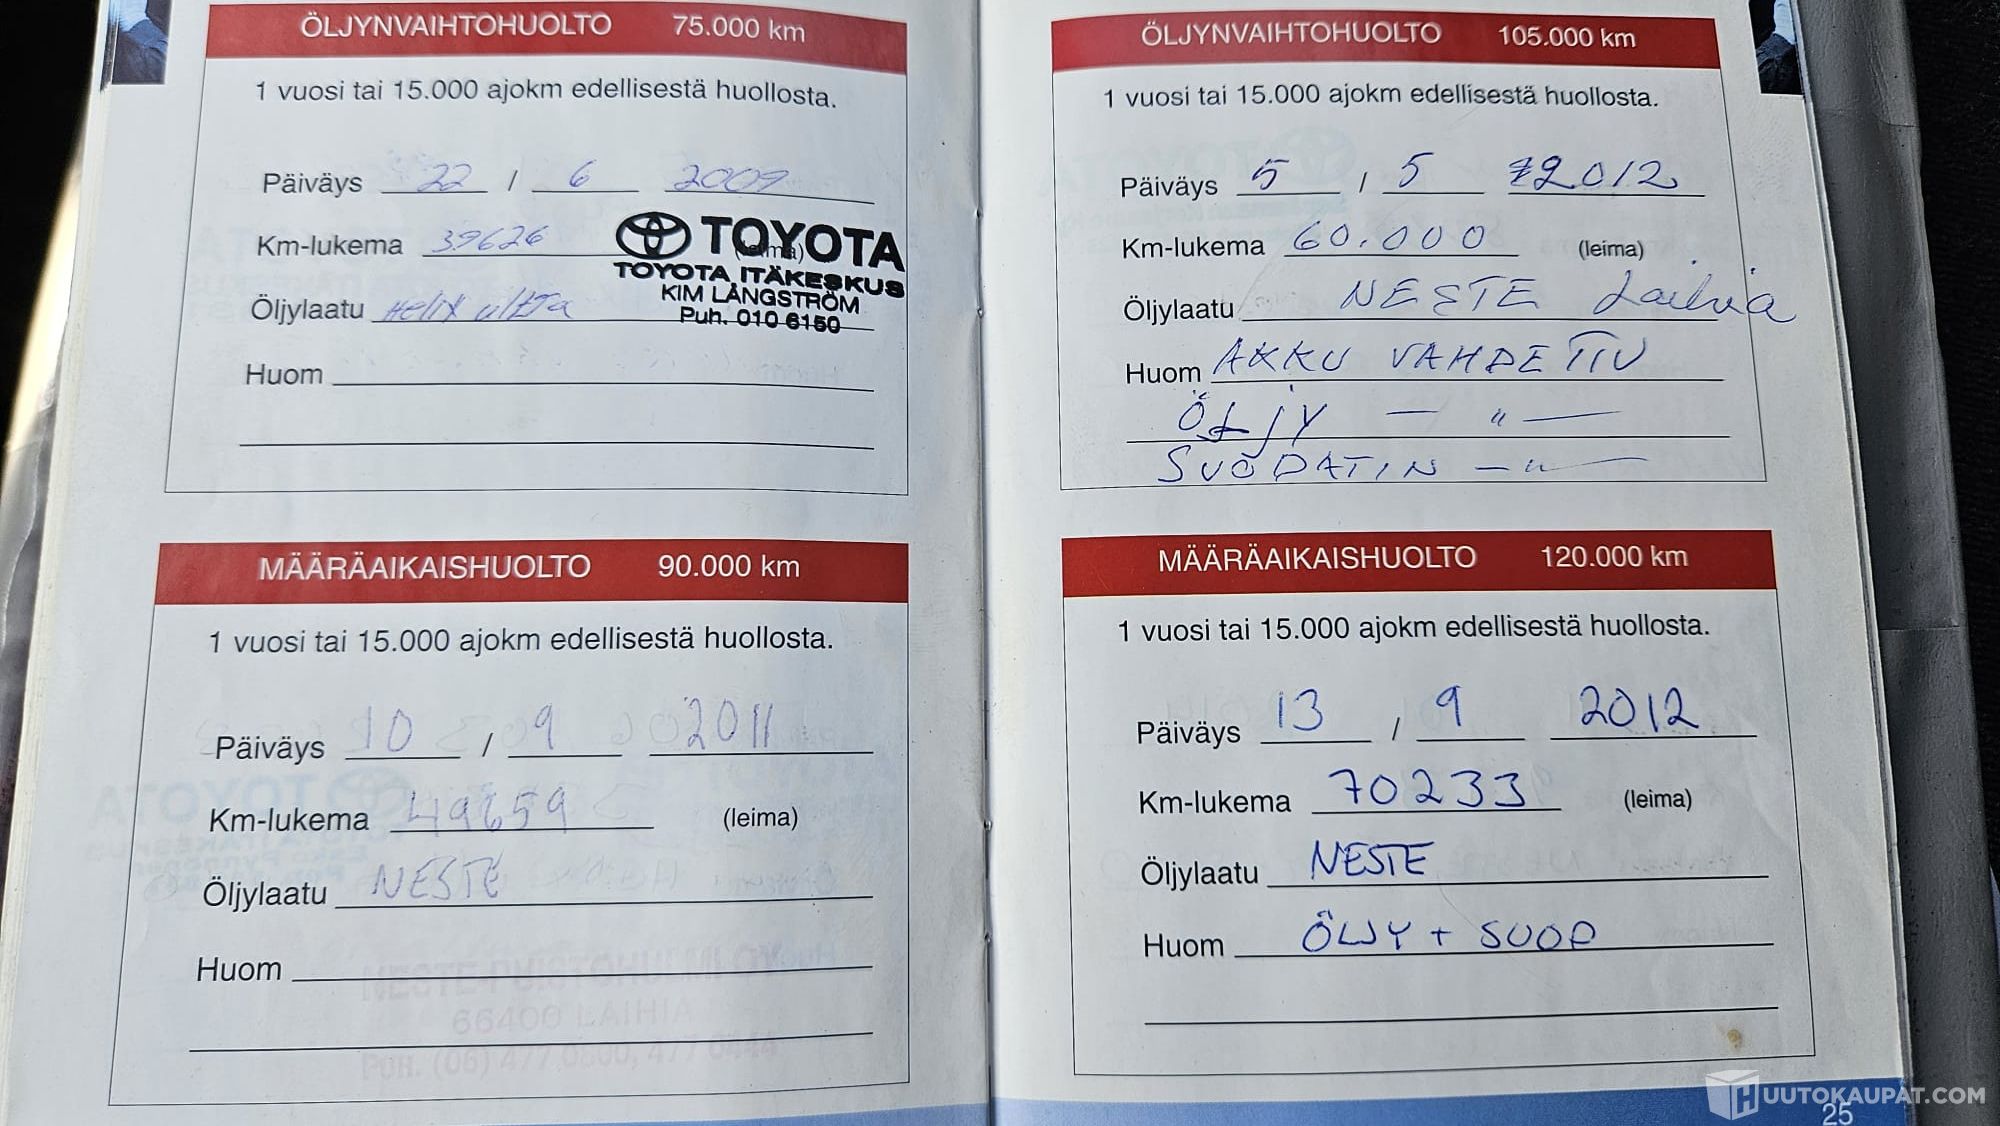 ÖLJYNVAIHTOHUOLTO 75.000 km
1 vuosi tai 15.000 ajokm edellisestä huollosta.
Päiväys 22 / 6 2009
Km-lukema 39626 (leima)
TOYOTA
TOYOTA ITÄKESKUS
KIM LÅNGSTRÖM
Puh. 010 6150
Öljylaatu Helix ultra
Huom
MÄÄRÄAIKAISHUOLTO 90.000 km
1 vuosi tai 15.000 ajokm edellisestä huollosta.
Päiväys 10 / 9 2011
Km-lukema 49659 (leima)
Öljylaatu NESTE
Huom
66400 LAIHIA
ÖLJYNVAIHTOHUOLTO 105.000 km
1 vuosi tai 15.000 ajokm edellisestä huollosta.
Päiväys 5 / 5 2012
Km-lukema 60.000 (leima)
Öljylaatu NESTE Laihia
Huom AKKU VAHDETTU
ÖLJY — " —
SUODATIN — " —
MÄÄRÄAIKAISHUOLTO 120.000 km
1 vuosi tai 15.000 ajokm edellisestä huollosta.
Päiväys 13 / 9 2012
Km-lukema 70233 (leima)
Öljylaatu NESTE
Huom ÖLJY + SUOD
25
HUUTOKAUPAT.COM